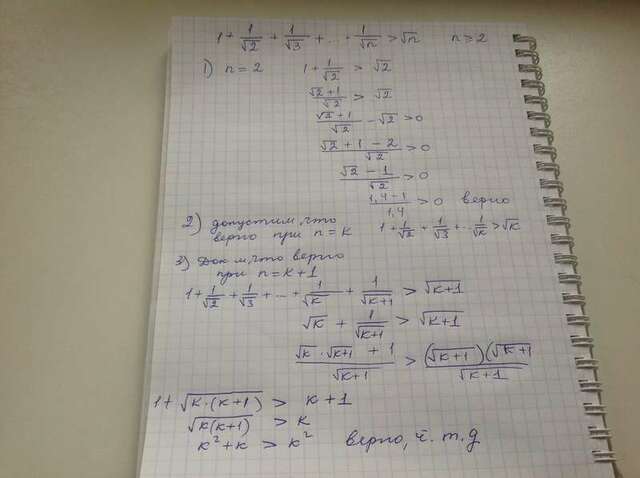 1 + 1/√2 + 1/√3 + ... + 1/√n > √n   n ≥ 2
1) n = 2   1 + 1/√2 > √2
(√2 + 1)/√2 > √2
(√2 + 1)/√2 - √2 > 0
(√2 + 1 - 2)/√2 > 0
(√2 - 1)/√2 > 0
(1,4 - 1)/1,4 > 0   верно
2) допустим, что
верно при n = k   1 + 1/√2 + 1/√3 + ... 1/√k > √k
3) Док-м, что верно
при n = k + 1
1 + 1/√2 + 1/√3 + ... + 1/√k + 1/√(k+1) > √(k+1)
√k + 1/√(k+1) > √(k+1)
(√k · √(k+1) + 1)/√(k+1) > (√(k+1))(√(k+1))/√(k+1)
1 + √(k·(k+1)) > k + 1
√(k(k+1)) > k
k² + k > k²   верно, ч. т. д